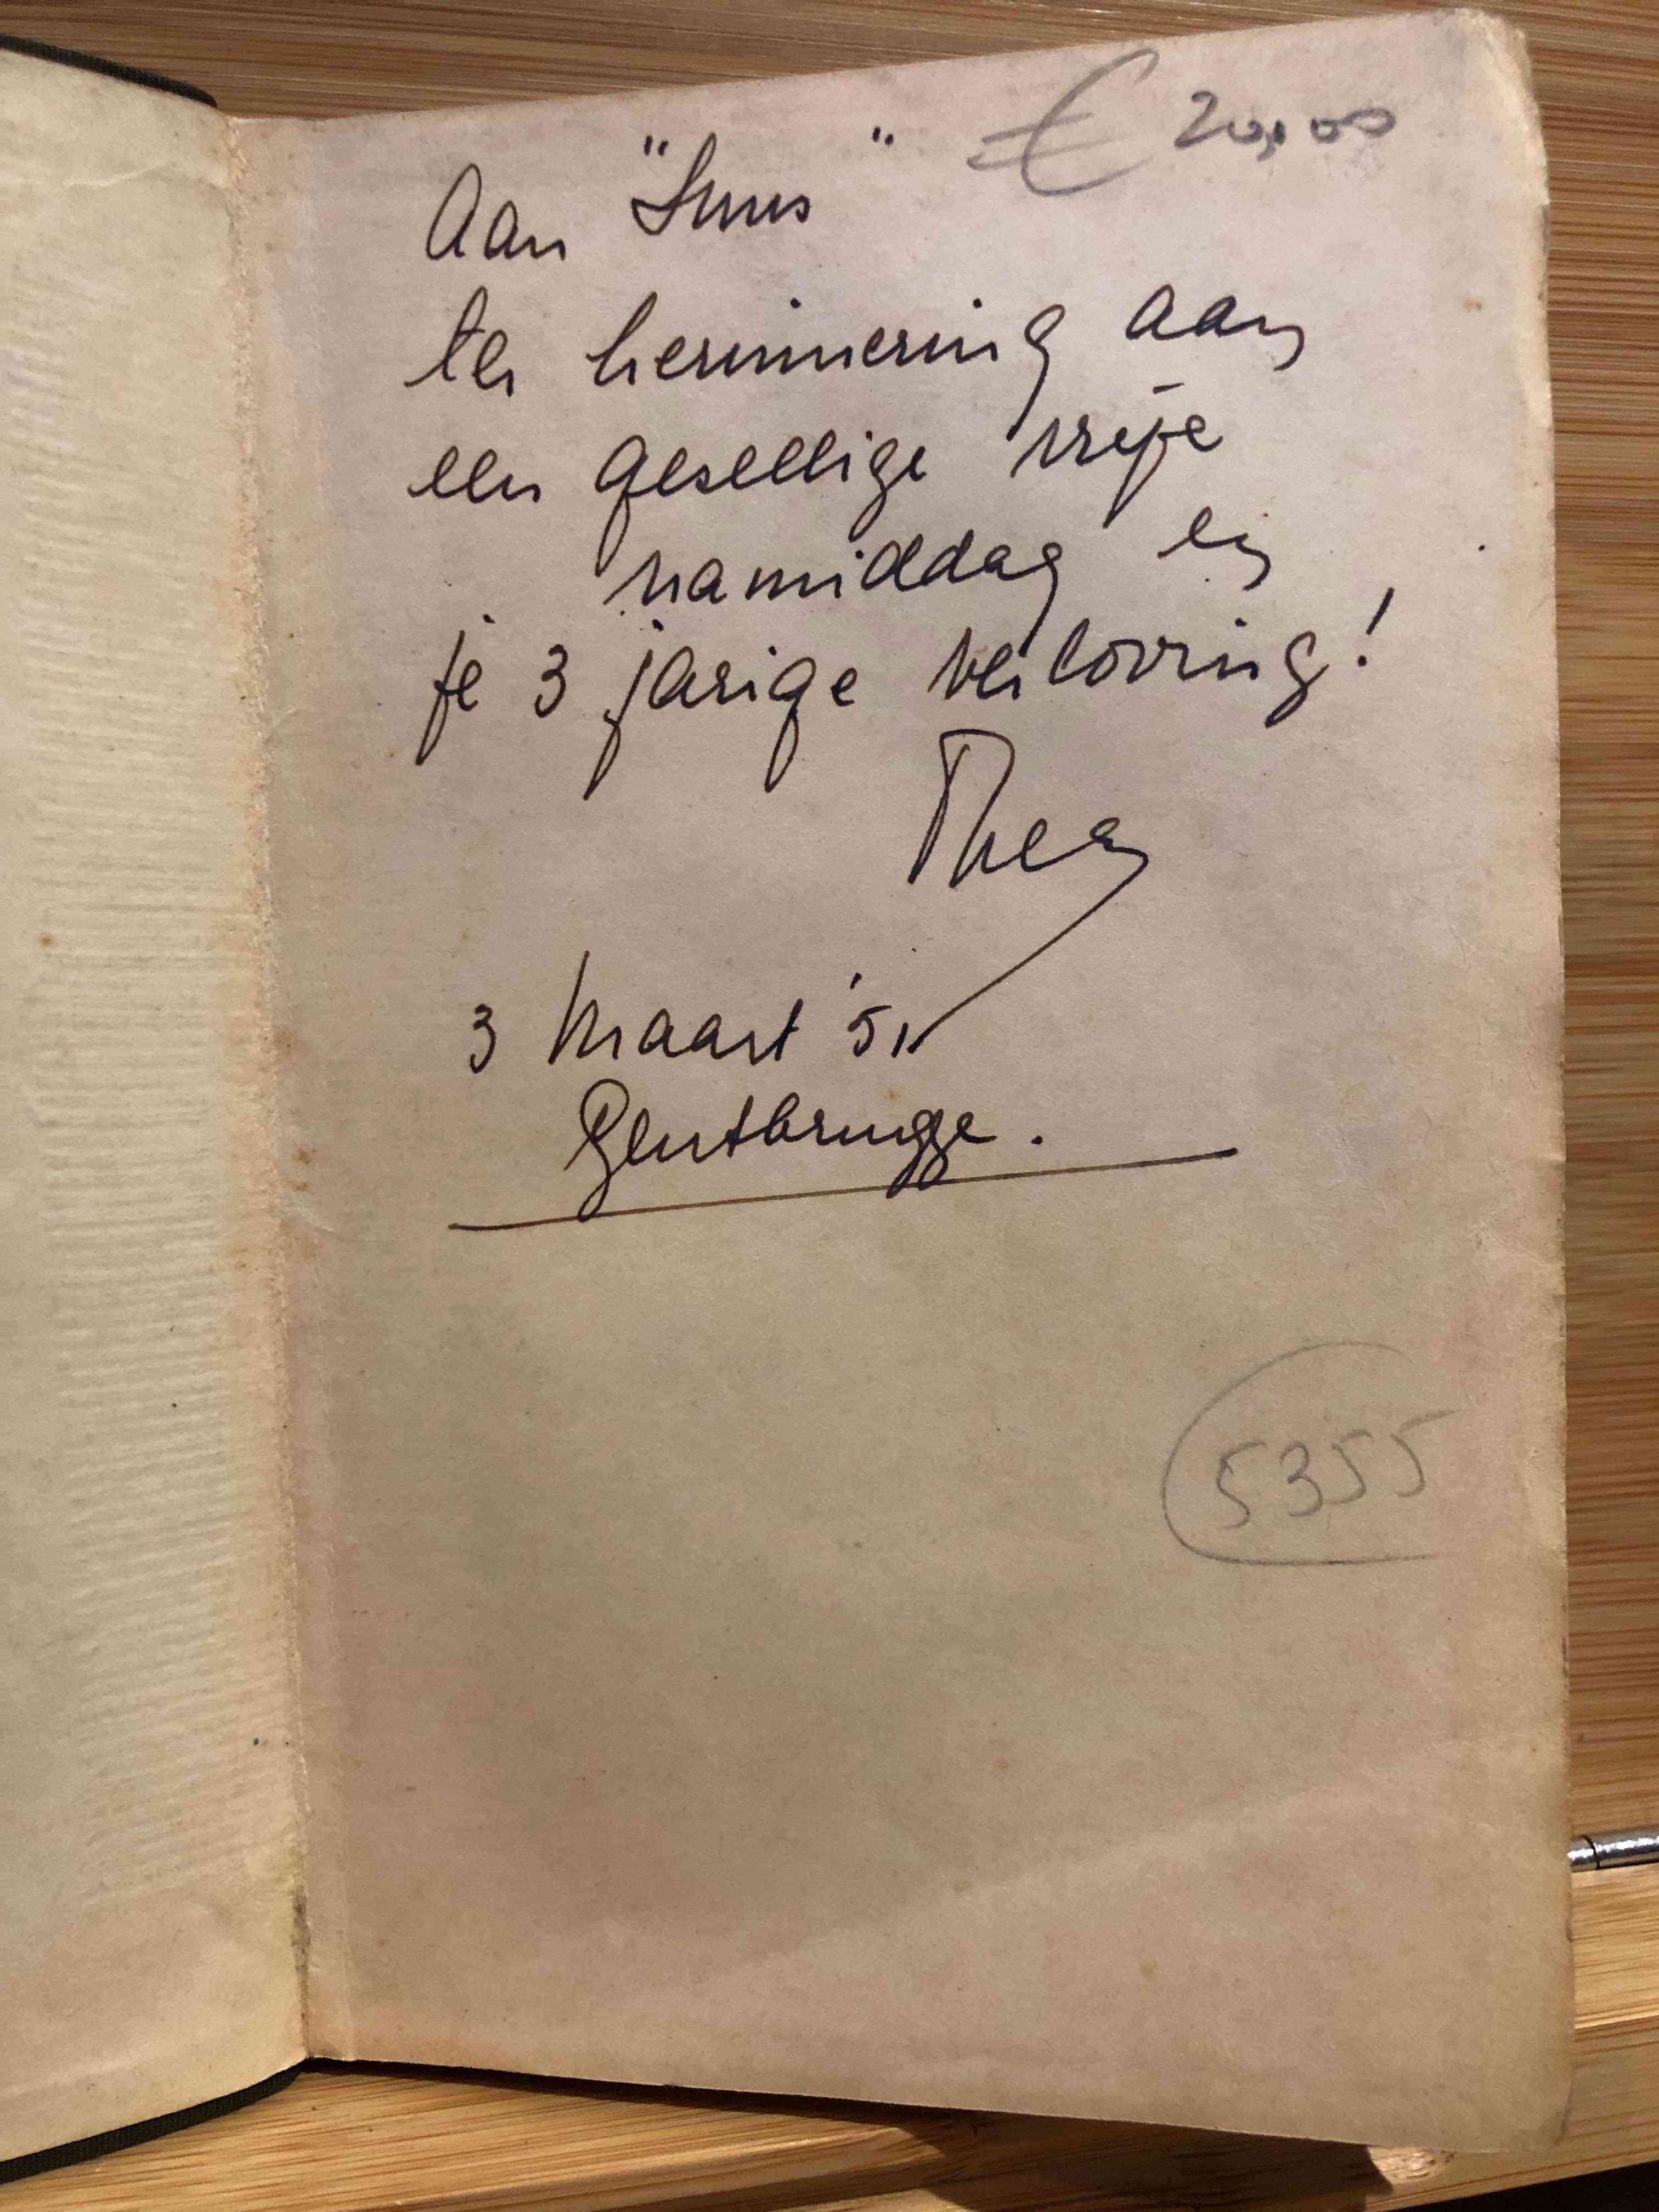 € 20,00
Aan "Suus"
ter herinnering aan
een gesellige vrije
namiddag en
je 3 jarige verloving!
Thea
3 Maart '51
Gentbrugge.
5355